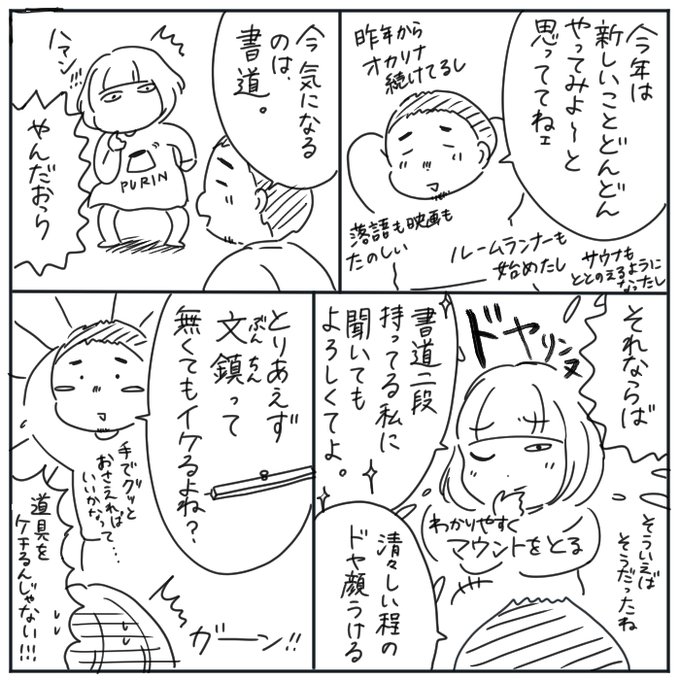 今年は
新しいことどんどん
やってみよ〜と
思っててねェ
昨年から
オカリナ
続けてるし
落語も映画も
たのしい
ルームランナーも
始めたし
サウナも
ととのえるように
なったし
今気になる
のは、
書道。
ハァン!!
PURIN
やんだおら
それならば
ドヤリンヌ
書道二段
持ってる私に
聞いても
よろしくてよ。
わかりやすく
マウントをとる
そういえば
そうだったね
清々しい程の
ドヤ顔うける
とりあえず
文鎮って
ぶんちん
無くてもイケるよね?
手でグッと
おさえれば
いいかなって…
道具を
ケチるんじゃない!!!
ガーン!!